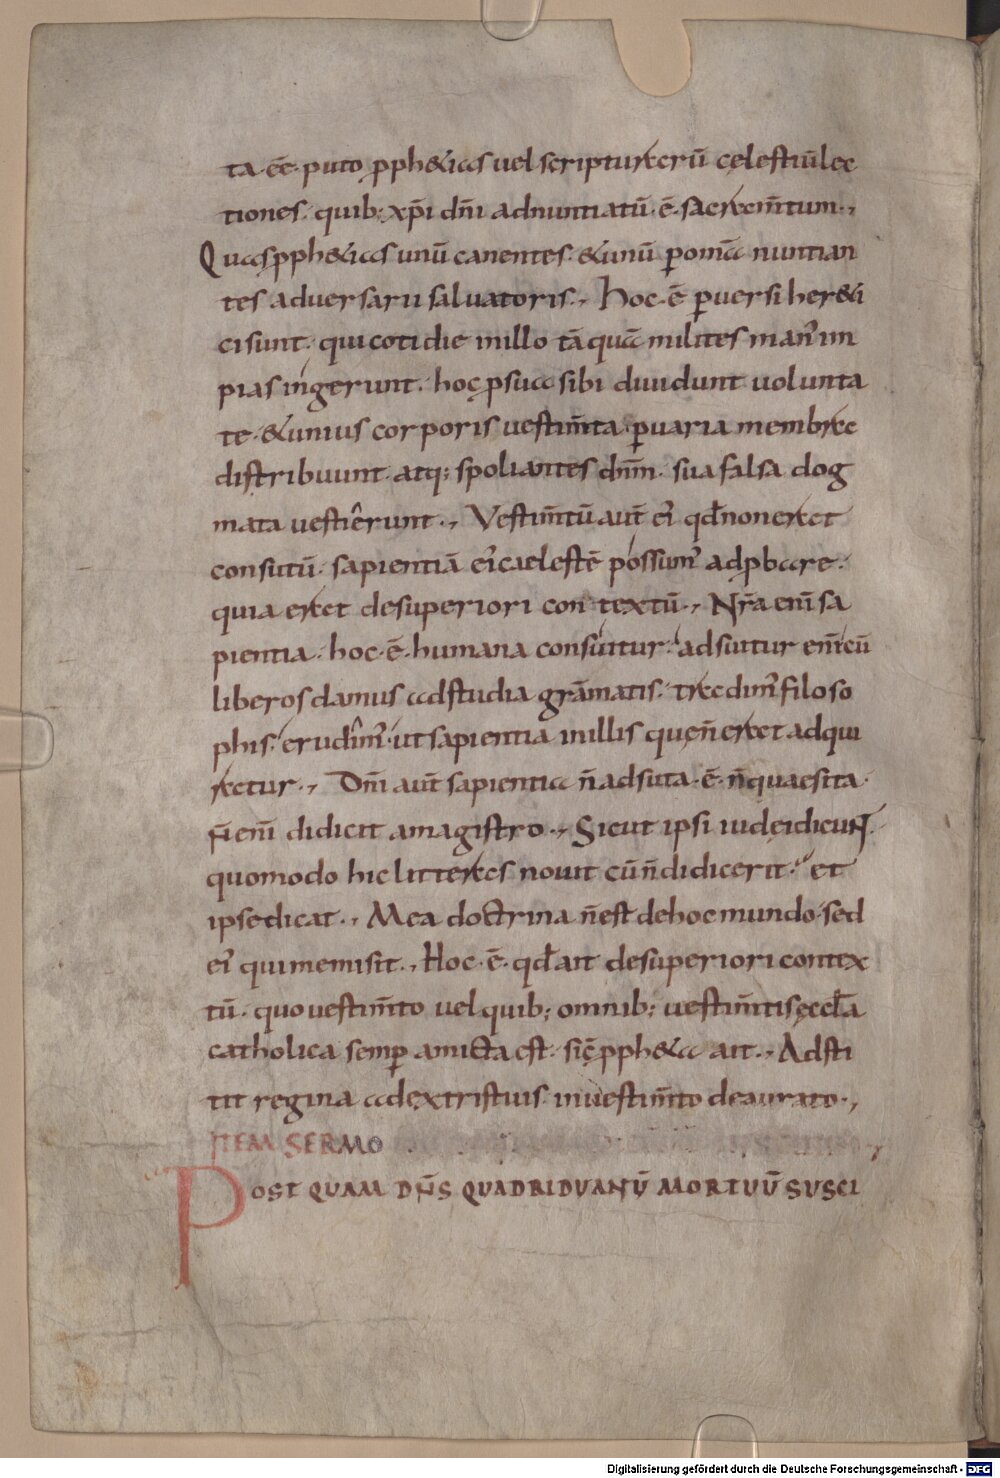 ta·eē·puto ꝓph&icas uel scripturarū cęlestiū lec
tiones· quib; xp̄i dn̄i adnuntiatū·ē·sacram̄tum·,
Quas ꝓph&icas unū canentes· &unū ꝑ omīa nuntian
tes aduersarii saluatoris·, Hoc·ē ꝑuersi her&i
ci sunt· qui cotidie in illo tā quā milites man᾽ im
pias ingerunt· hoc ꝓ sua sibi diuidunt uolunta
te·&unius corporis uestim̄ta ꝑ uaria membra
distribuunt· atq; spoliantes dn̄m· sua falsa dog
mata uestierunt·, Vestim̄tū aut̄ ei᾽ qđ non erat
consutū· sapientiā ei᾽ caelestē possum᾽ adꝓbare·
quia erat desuperiori contextū·, Nr̄a eni̅ sa
pientia· hoc·ē·humana consuitur· adsuitur eni̅ cū
liberos damus ad studia grāmatis· tradim᾽ filoso
phis· erudim᾽· ut sapientia in illis quę n̄ erat adqui
ratur·, Dn̄i aut̄ sapientia n̄ adsuta·ē·n̄ quaesita·
n̄ eni̅ didicit a magistro·, Sicut ipsi iudęi dicunt·
quomodo hic litteras nouit cū n̄ didicerit· et
ipse dicat·, Mea doctrina n̄ est de hoc mundo· sed
ei᾽ qui me misit·, Hoc·ē·qđ ait desuperiori contex
tū· quo uestim̄to uel quib; omnib; uestim̄tis ęccła
catholica semꝑ amicta est· sic ꝓph&a ait·, Adsti
tit regina a dextris tuis· in uestim̄to deaurato·,
ITEM SERMO
POST QUAM DN̄S QUADRIDUANŪ MORTUŪ SUSCI
Digitalisierung gefördert durch die Deutsche Forschungsgemeinschaft - DFG